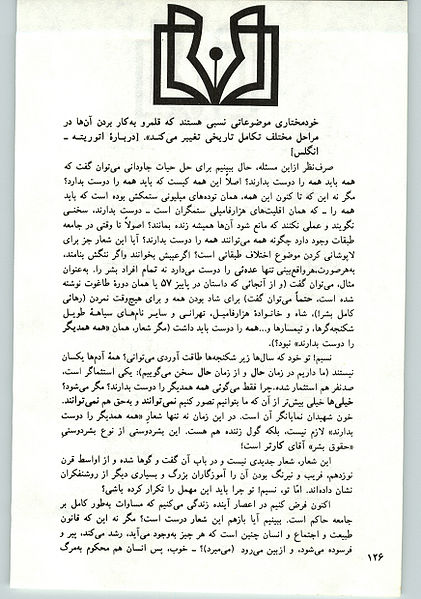 خودمختاری موضوعاتی نسبی هستند که قلمرو به‌کار بردن آن‌ها در
مراحل مختلف تکامل تاریخی تغییر می‌کند». [دربارهٔ اتوریته ـ
انگلس]
صرف‌نظر ازاین مسئله، حال ببینیم برای حل حیات جاودانی می‌توان گفت که
همه باید همه را دوست بدارند؟ اصلاً این همه کیست که باید همه را دوست بدارد؟
مگر نه این که تا کنون این همه، همان توده‌های میلیونی ستمکش بوده است که باید
همه را ـ که همان اقلیت‌های هزارفامیلی ستمگران است ـ دوست بدارند، سخنی
نگویند و عملی نکنند که مانع شود آن‌ها همیشه زنده بمانند؟ اصولاً تا وقتی در جامعه
طبقات وجود دارد چگونه همه می‌توانند همه را دوست بدارند؟ آیا این شعار جز برای
لاپوشانی کردن موضوع اختلاف طبقاتی است؟ اگرعیبش بخوانند واگر ننگش بنامند،
به‌هرصورت،هرواقع‌بینی تنها عده‌ئی را دوست می‌دارد نه تمام افراد بشر را. به‌عنوان
مثال، می‌توان گفت (و از آنجائی که داستان در پاییز ۵۷ یا همان دورهٔ طاغوت نوشته
شده است، حتماً می‌توان گفت) برای شاد بودن همه و برای هیچ‌وقت نمردن (رهائی
کامل بشر!)، شاه و خانوادهٔ هزارفامیل، تهرانی و سایر نام‌های سیاههٔ طویل
شکنجه‌گرها، و تیمسارها و...همه را دوست باید داشت (مگر شعار، همان «همه همدیگر
را دوست بدارند» نبود؟).
نسیم! تو خود که سال‌ها زیر شکنجه‌ها طاقت آوردی می‌توانی؟ همهٔ آدم‌ها یکسان
نیستند (ما داریم در زمان حال و از زمان حال سخن می‌گوییم): یکی استثماگر است،
صدنفر هم استثمار شده.چرا فقط می‌گوئی همه همدیگر را دوست بدارند؟ مگر می‌شود؟
خیلی‌ها خیلی بیش‌تر از آن که ما بتوانیم تصور کنیم نمی‌توانند و به‌حق هم نمی‌توانند.
خون شهیدان نمایانگر آن است. در این زمان نه تنها شعار «همه همدیگر را دوست
بدارند» لازم نیست، بلکه گول زننده هم هست. این بشردوستی از نوع بشردوستی
«حقوق بشر» آقای کارتر است؛
این شعار، شعار جدیدی نیست و در باب آن گفت و گوها شده و از اواسط قرن
نوزدهم، فریب و نیرنگ بودن آن را آموزگاران بزرگ و بسیاری دیگر از روشنفکران
نشان داده‌اند. امّا تو، نسیم! تو چرا باید این مهمل را تکرار کرده باشی؟
اکنون فرض کنیم در اعصار آینده زندگی می‌کنیم که مساوات به‌طور کامل بر
جامعه حاکم است. ببینیم آیا بازهم این شعار درست است؟ مگر نه این که قانون
طبیعت و اجتماع و انسان چنین است که هر چیز به‌وجود می‌آید، رشد می‌کند، پیر و
فرسوده می‌شود، و ازبین می‌رود (می‌میرد)؟ ـ خوب، پس انسان هم محکوم به‌مرگ
۱۲۶